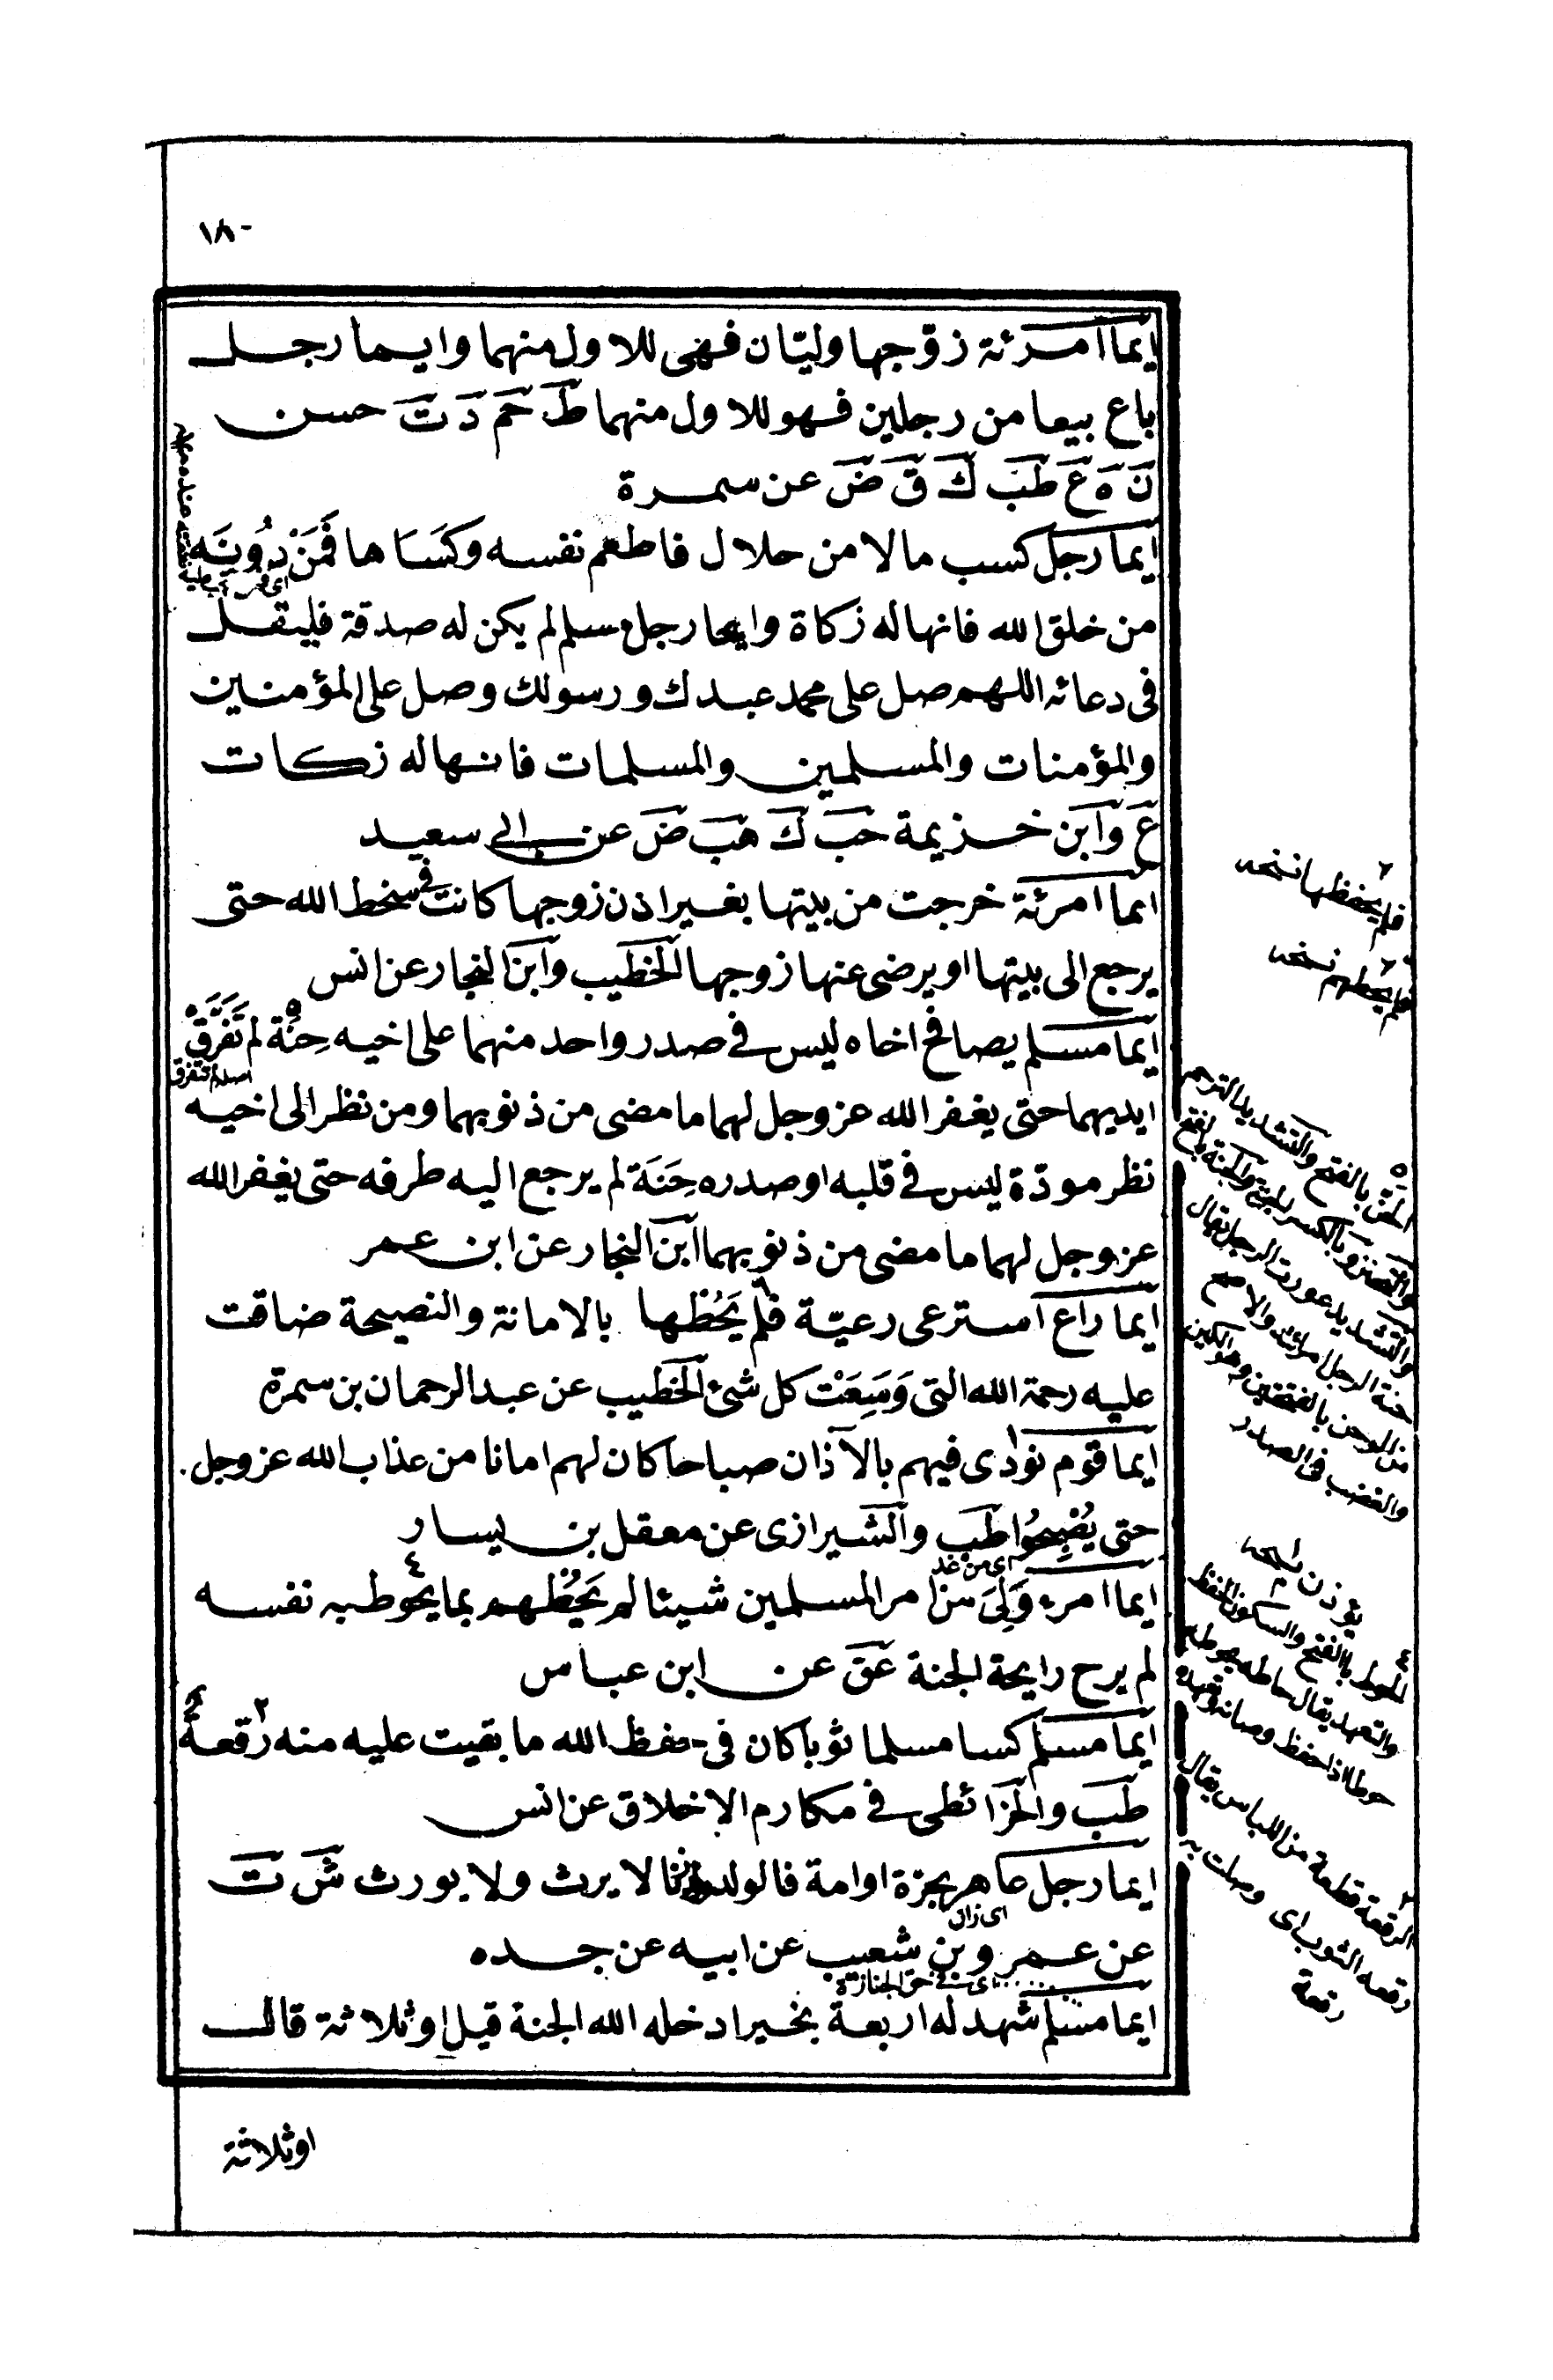 ١٨٠
ايما امرئة زوّجها وليّان فهى للاول منهما وايما رجل
باع بيعا من رجلين فهو للاول منهما ط حم د ت حسن
ن ه ع طب ك ق ض عن سمرة
ايما رجل كسب مالا من حلال فاطعم نفسه وكَسَاها فَمَنْ دُونَه
من خلق الله فانها له زكاة وايما رجل مسلم لم يكن له صدقة فليقل
فى دعائه اللهم صل على محمد عبدك ورسولك وصل على المؤمنين
والمؤمنات والمسلمين والمسلمات فانها له زكات
ع وابن خزيمة حب ك هب ض عن ابى سعيد
ايما امرئة خرجت من بيتها بغير اذن زوجها كانت فى سخط الله حتى
يرجع الى بيتها او يرضى عنها زوجها الخطيب وابن النجار عن انس
ايما مسلم يصافح اخاه ليس فى صدر واحد منهما على اخيه حِنَة لم تَفَرَّق
اصله تتفرق
ايديهما حتى يغفر الله عز وجل لهما ما مضى من ذنوبهما ومن نظر الى اخيه
نظر مودّة ليس فى قلبه او صدره حِنَة لم يرجع اليه طرفه حتى يغفر الله
عز وجل لهما ما مضى من ذنوبهما ابن النجار عن ابن عمر
ايما راع استرعى رعيّة فلم يَحُظها بالامانة والنصيحة ضاقت
عليه رحمة الله التى وَسِعَتْ كل شئ الخطيب عن عبد الرحمان بن سمرة
ايما قوم نودى فيهم بالآذان صباحا كان لهم امانا من عذاب الله عز وجل
حتى يُصْبِحُوا طب والشيرازى عن معقل بن يسار
اى من غد
ايما امرء وَلِىَ من امر المسلمين شيئا لم يَحُظهم بما يحوط به نفسه
لم يرح رايحة الجنة عق عن ابن عباس
ايما مسلم كسا مسلما ثوبا كان فى حفظ الله ما بقيت عليه منه رقعةٌ
طب والخرائطى فى مكارم الاخلاق عن انس
ايما رجل عاهر بحرة او امة فالولد ولد زنا لا يرث ولا يورث ش ت
اى زان
عن عمرو بن شعيب عن ابيه عن جده
فى حق الجنازة
ايما مسلم شهد له اربعة بخير ادخله الله الجنة قيل او ثلاثة قال
او ثلاثة
فلم يحفظها نسخه
فلم يحطهم نسخه
والتشديد عورت الرجل يقال
حنة الرجل امرأته والاصح
والغضب فى الصدر
يؤذن نسخه
الحوط بالفتح والسكون الحفظ
والتعهد يقال حاطه يحوطه
حوطا اذا حفظ وصانه وتعهده
الرقعة قطعة من اللباس يقال
رقعه الثوب اى وصلت به
رقعة